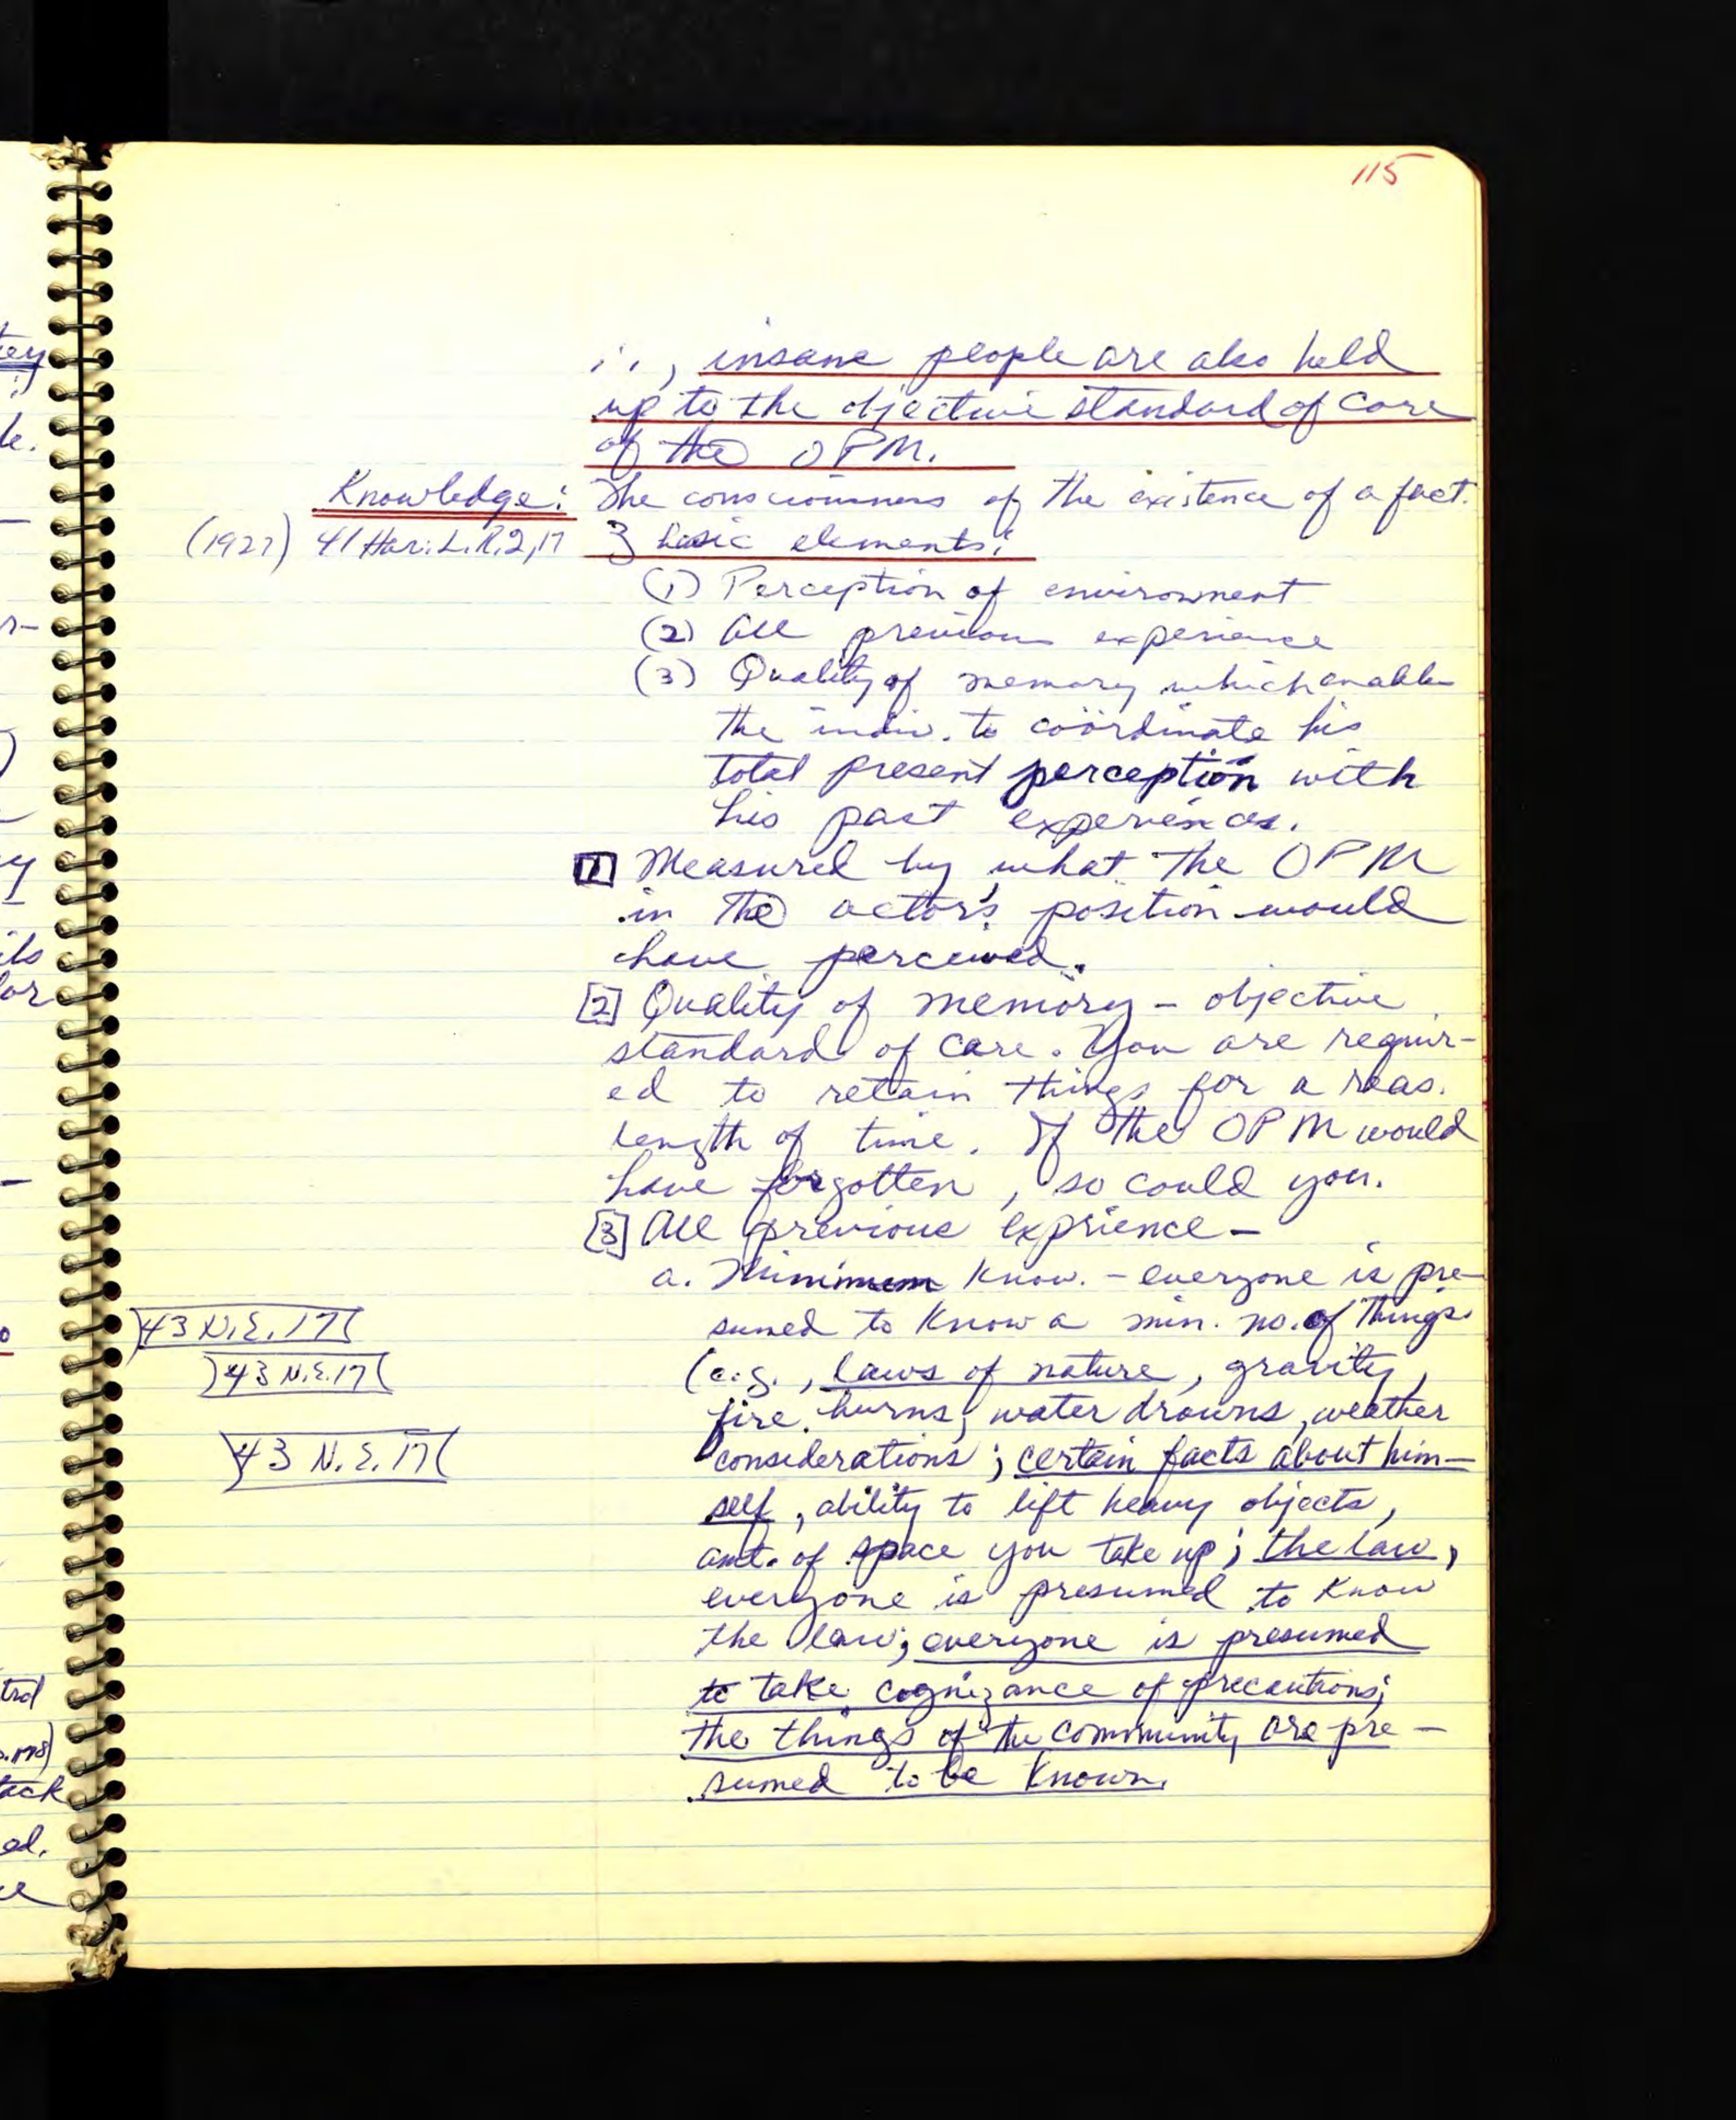 115
∴, insane people are also held
up to the objective standard of care
of the OPM.
Knowledge: The consciousness of the existence of a fact.
(1927) 41 Har. L.R. 2, 17 3 basic elements:
(1) Perception of environment
(2) All previous experience
(3) Quality of memory which enables
the indiv. to coördinate his
total present perception with
his past experiences.
[1] Measured by what the OPM
in the actor's position would
have perceived.
[2] Quality of memory – objective
standard of care. You are requir-
ed to retain things for a reas.
length of time. If the OPM would
have forgotten, so could you.
[3] All previous exprience –
a. Minimum know. – everyone is pre-
sumed to know a min. no. of things
43 N.E. 17
(e.g., laws of nature, gravity,
43 N.E. 17
fire burns, water drowns, weather
considerations; certain facts about him-
43 N.E. 17
self, ability to lift heavy objects,
amt. of space you take up; the law,
everyone is presumed to know
the law; everyone is presumed
to take cognizance of precautions;
the things of the community are pre-
sumed to be known.
tey
le.
ils
or
trol
tack
ed.